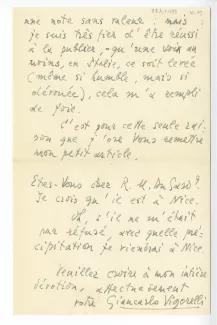 une note sans valeur : mais
je suis très fier d'être réussi
à la publier, qu'une voix au
moins, en Italie, ce soit levée
(même si humble, mais si
dévouée), cela m'a rempli
de joie.
C'est pour cette seule rai-
son que j'ose Vous remettre
mon petit article.
Etes-Vous chez R. M. Du Gard?
Je crois qu'il est à Nice.
Oh, s'il ne m'était
pas refusé, avec quelle pré-
cipitation je viendrai à Nice.
Veuillez croire à mon intière
dévotion, affectueusement
votre Giancarlo Vigorelli